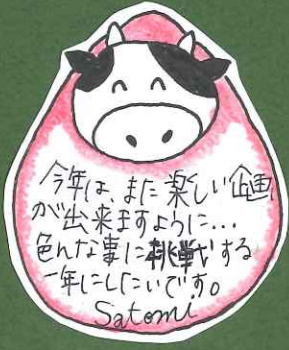 今年は、また楽しい企画
が出来ますように...
色んな事に挑戦する
一年にしたいです。
Satomi